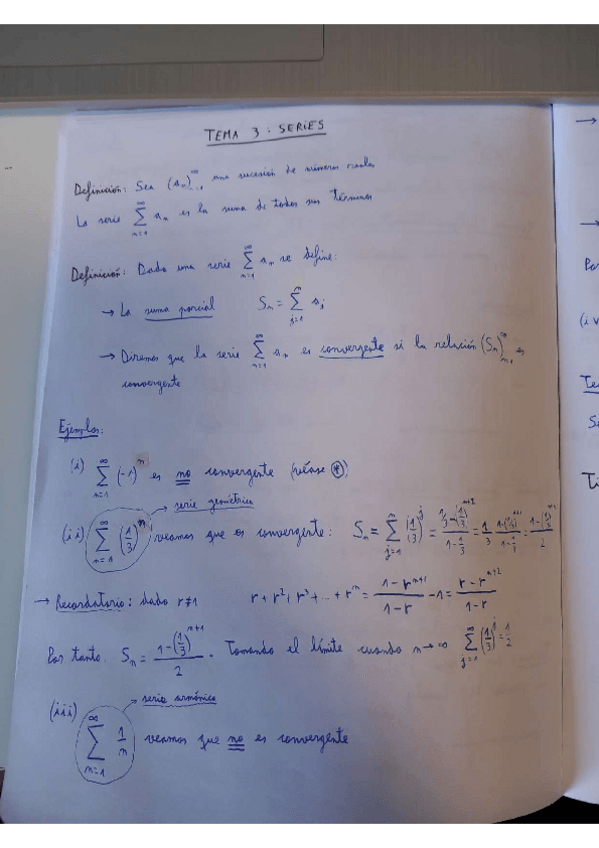 TEMA 3: SERIES
Definición: Sea (aₙ)ₙ₌₁^∞ una sucesión de números reales
La serie ∑ₙ₌₁^∞ aₙ es la suma de todos sus términos
Definición: Dada una serie ∑ₙ₌₁^∞ aₙ se define:
→ La suma parcial Sₙ = ∑ⱼ₌₁ⁿ aⱼ
→ Diremos que la serie ∑ₙ₌₁^∞ aₙ es convergente si la relación (Sₙ)ₙ₌₁^∞ es
convergente
Ejemplos:
(i) ∑ₙ₌₁^∞ (-1)ⁿ es no convergente (véase *)
serie geométrica
(ii) ∑ₙ₌₁^∞ (1/3)ⁿ veamos que es convergente: Sₙ = ∑ⱼ₌₁ⁿ (1/3)ʲ = (1/3 - (1/3)^(n+2))/(1 - 1/3) = 1/3 (1-(1/3)^(n+1))/(1-1/3) = (1-(1/3)^(n+1))/2
→ Recordatorio: dado r≠1 r + r² + r³ + ... + rⁿ = (1 - r^(n+1))/(1 - r) - 1 = (r - r^(n+2))/(1 - r)
Por tanto. Sₙ = (1-(1/3)^(n+1))/2 . Tomando el límite cuando n→∞ ∑ⱼ₌₁^∞ (1/3)ʲ = 1/2
serie armónica
(iii) ∑ₙ₌₁^∞ 1/n veamos que no es convergente